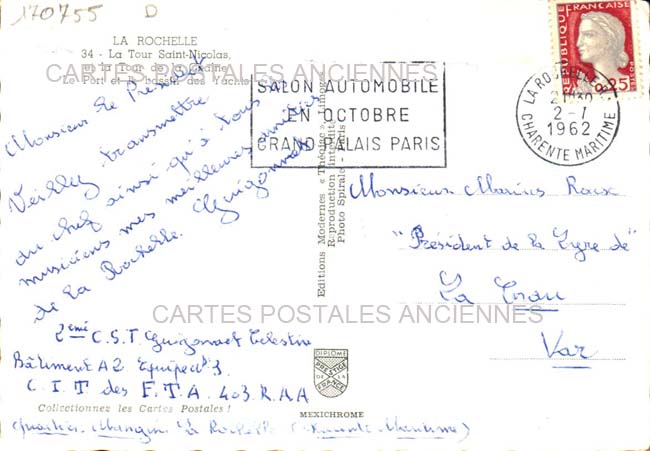 170755 D
LA ROCHELLE
34 - La Tour Saint-Nicolas,
et la Tour de la Chaîne
Le Port et le bassin des Yachts
CARTES POSTALES ANCIENNES
SALON AUTOMOBILE
EN OCTOBRE
GRAND PALAIS PARIS
LA ROCHELLE
2-7
1962
CHARENTE MARITIME
REPUBLIQUE FRANCAISE
0,25
POSTES
Monsieur le Président
Veillez transmettre
du chef ainsi qu'à tous
musiciens mes meilleures amitiés
de La Rochelle. Guigonnet
Editions Modernes « Théojac » Limoges
Reproduction Interdite
Photo Spirale - Paris
Monsieur Marius Roux
"Président de la Lyre de"
La Crau
Var
CARTES POSTALES ANCIENNES
2ème C.S.T. Guigonnet Célestin
Bâtiment A2 Equipe 3
C.I.T des F.T.A. 403.R.A.A
DIPLOME
PRESTIGE
DE LA
FRANCE
Collectionnez les Cartes Postales !
MEXICHROME
Quartier Mangin La Rochelle (Charente Maritime)